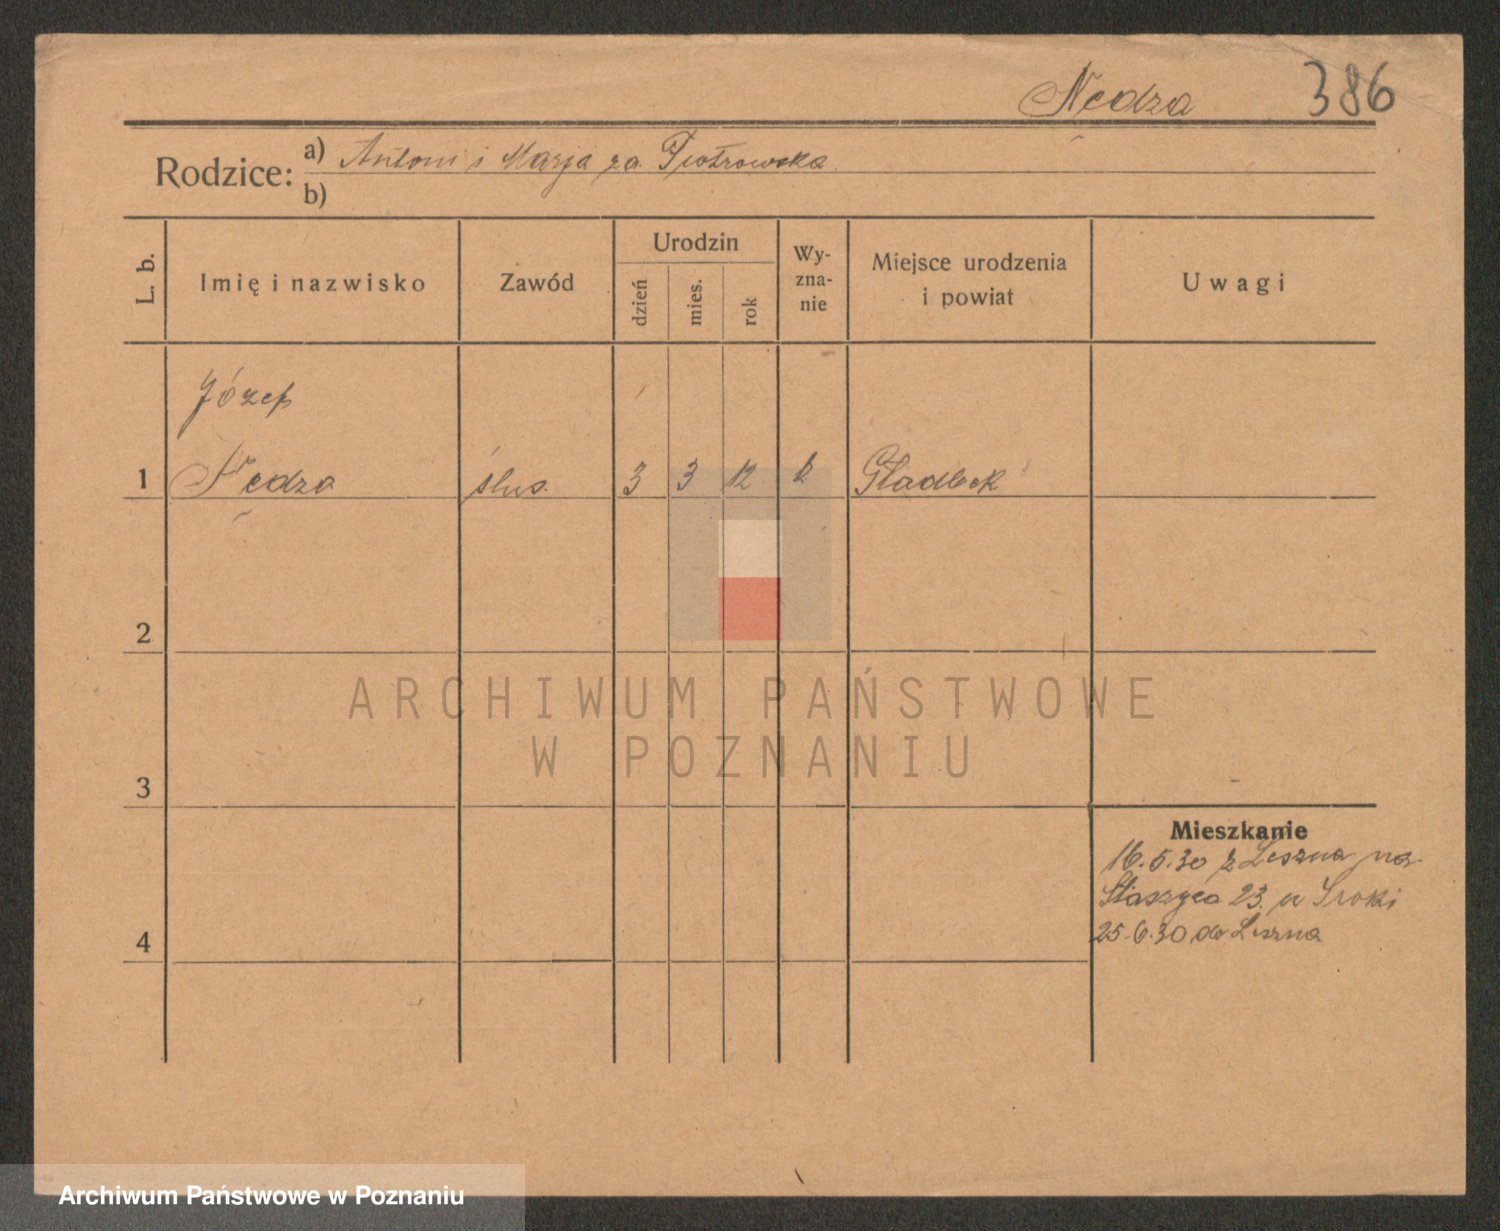 Nędza 386
Rodzice: a) Antoni i Marja za. Piotrowska
b)
L. b.
Imię i nazwisko
Zawód
Urodzin
dzień
mies.
rok
Wy-
zna-
nie
Miejsce urodzenia
i powiat
Uwagi
Józef
1 Nędza ślus. 3 3 12 k Gladbek
2
ARCHIWUM PAŃSTWOWE
W POZNANIU
3
Mieszkanie
16.5.30 z Leszna na
Staszyca 23. u Sroki
4
25.6.30 do Leszna
Archiwum Państwowe w Poznaniu